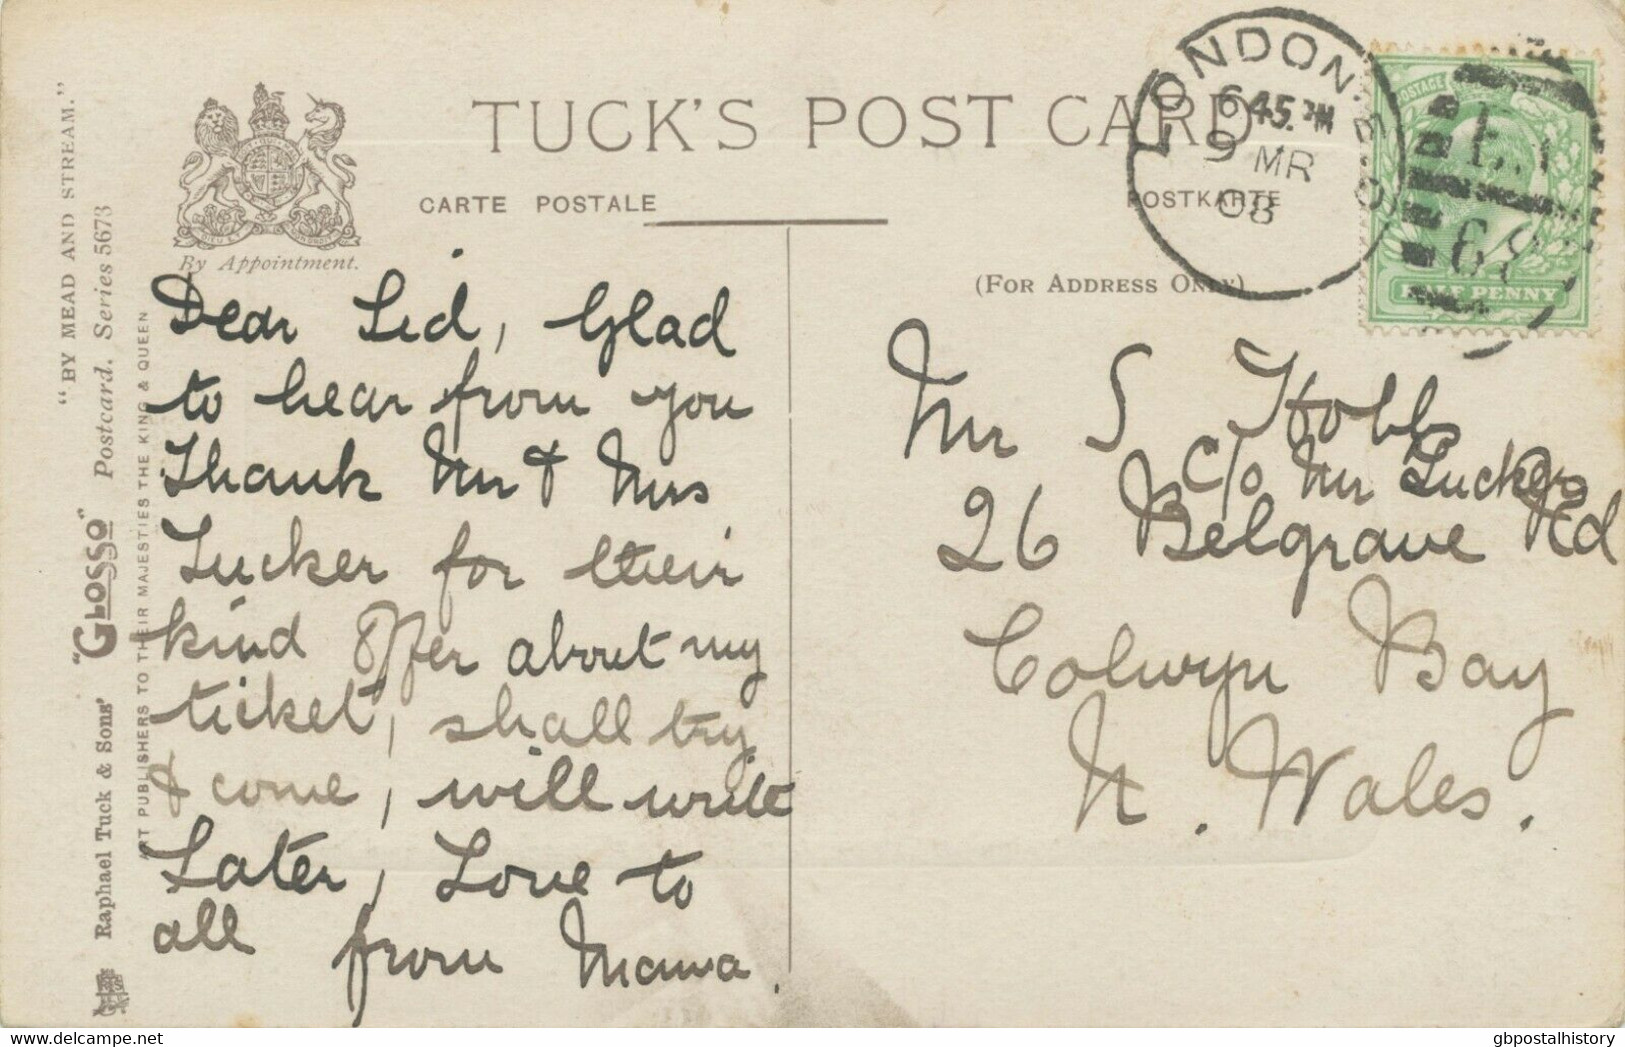 TUCK'S POST CARD
CARTE POSTALE
POSTKARTE
By Appointment.
(FOR ADDRESS ONLY)
LONDON. E.C
6 45. PM
9 MR
08
POSTAGE
HALF PENNY
"BY MEAD AND STREAM."
Raphael Tuck & Sons' "GLOSSO" Postcard. Series 5673
ART PUBLISHERS TO THEIR MAJESTIES THE KING & QUEEN
Dear Sid, Glad
to hear from you
Thank Mr & Mrs
Tucker for their
kind offer about my
ticket, shall try
& come, will write
Later, Love to
all from Mama.
Mr S Hobbs
C/o Mr Tuckers
26 Belgrave Rd
Colwyn Bay
N. Wales.
delcampe.net
gbpostalhistory